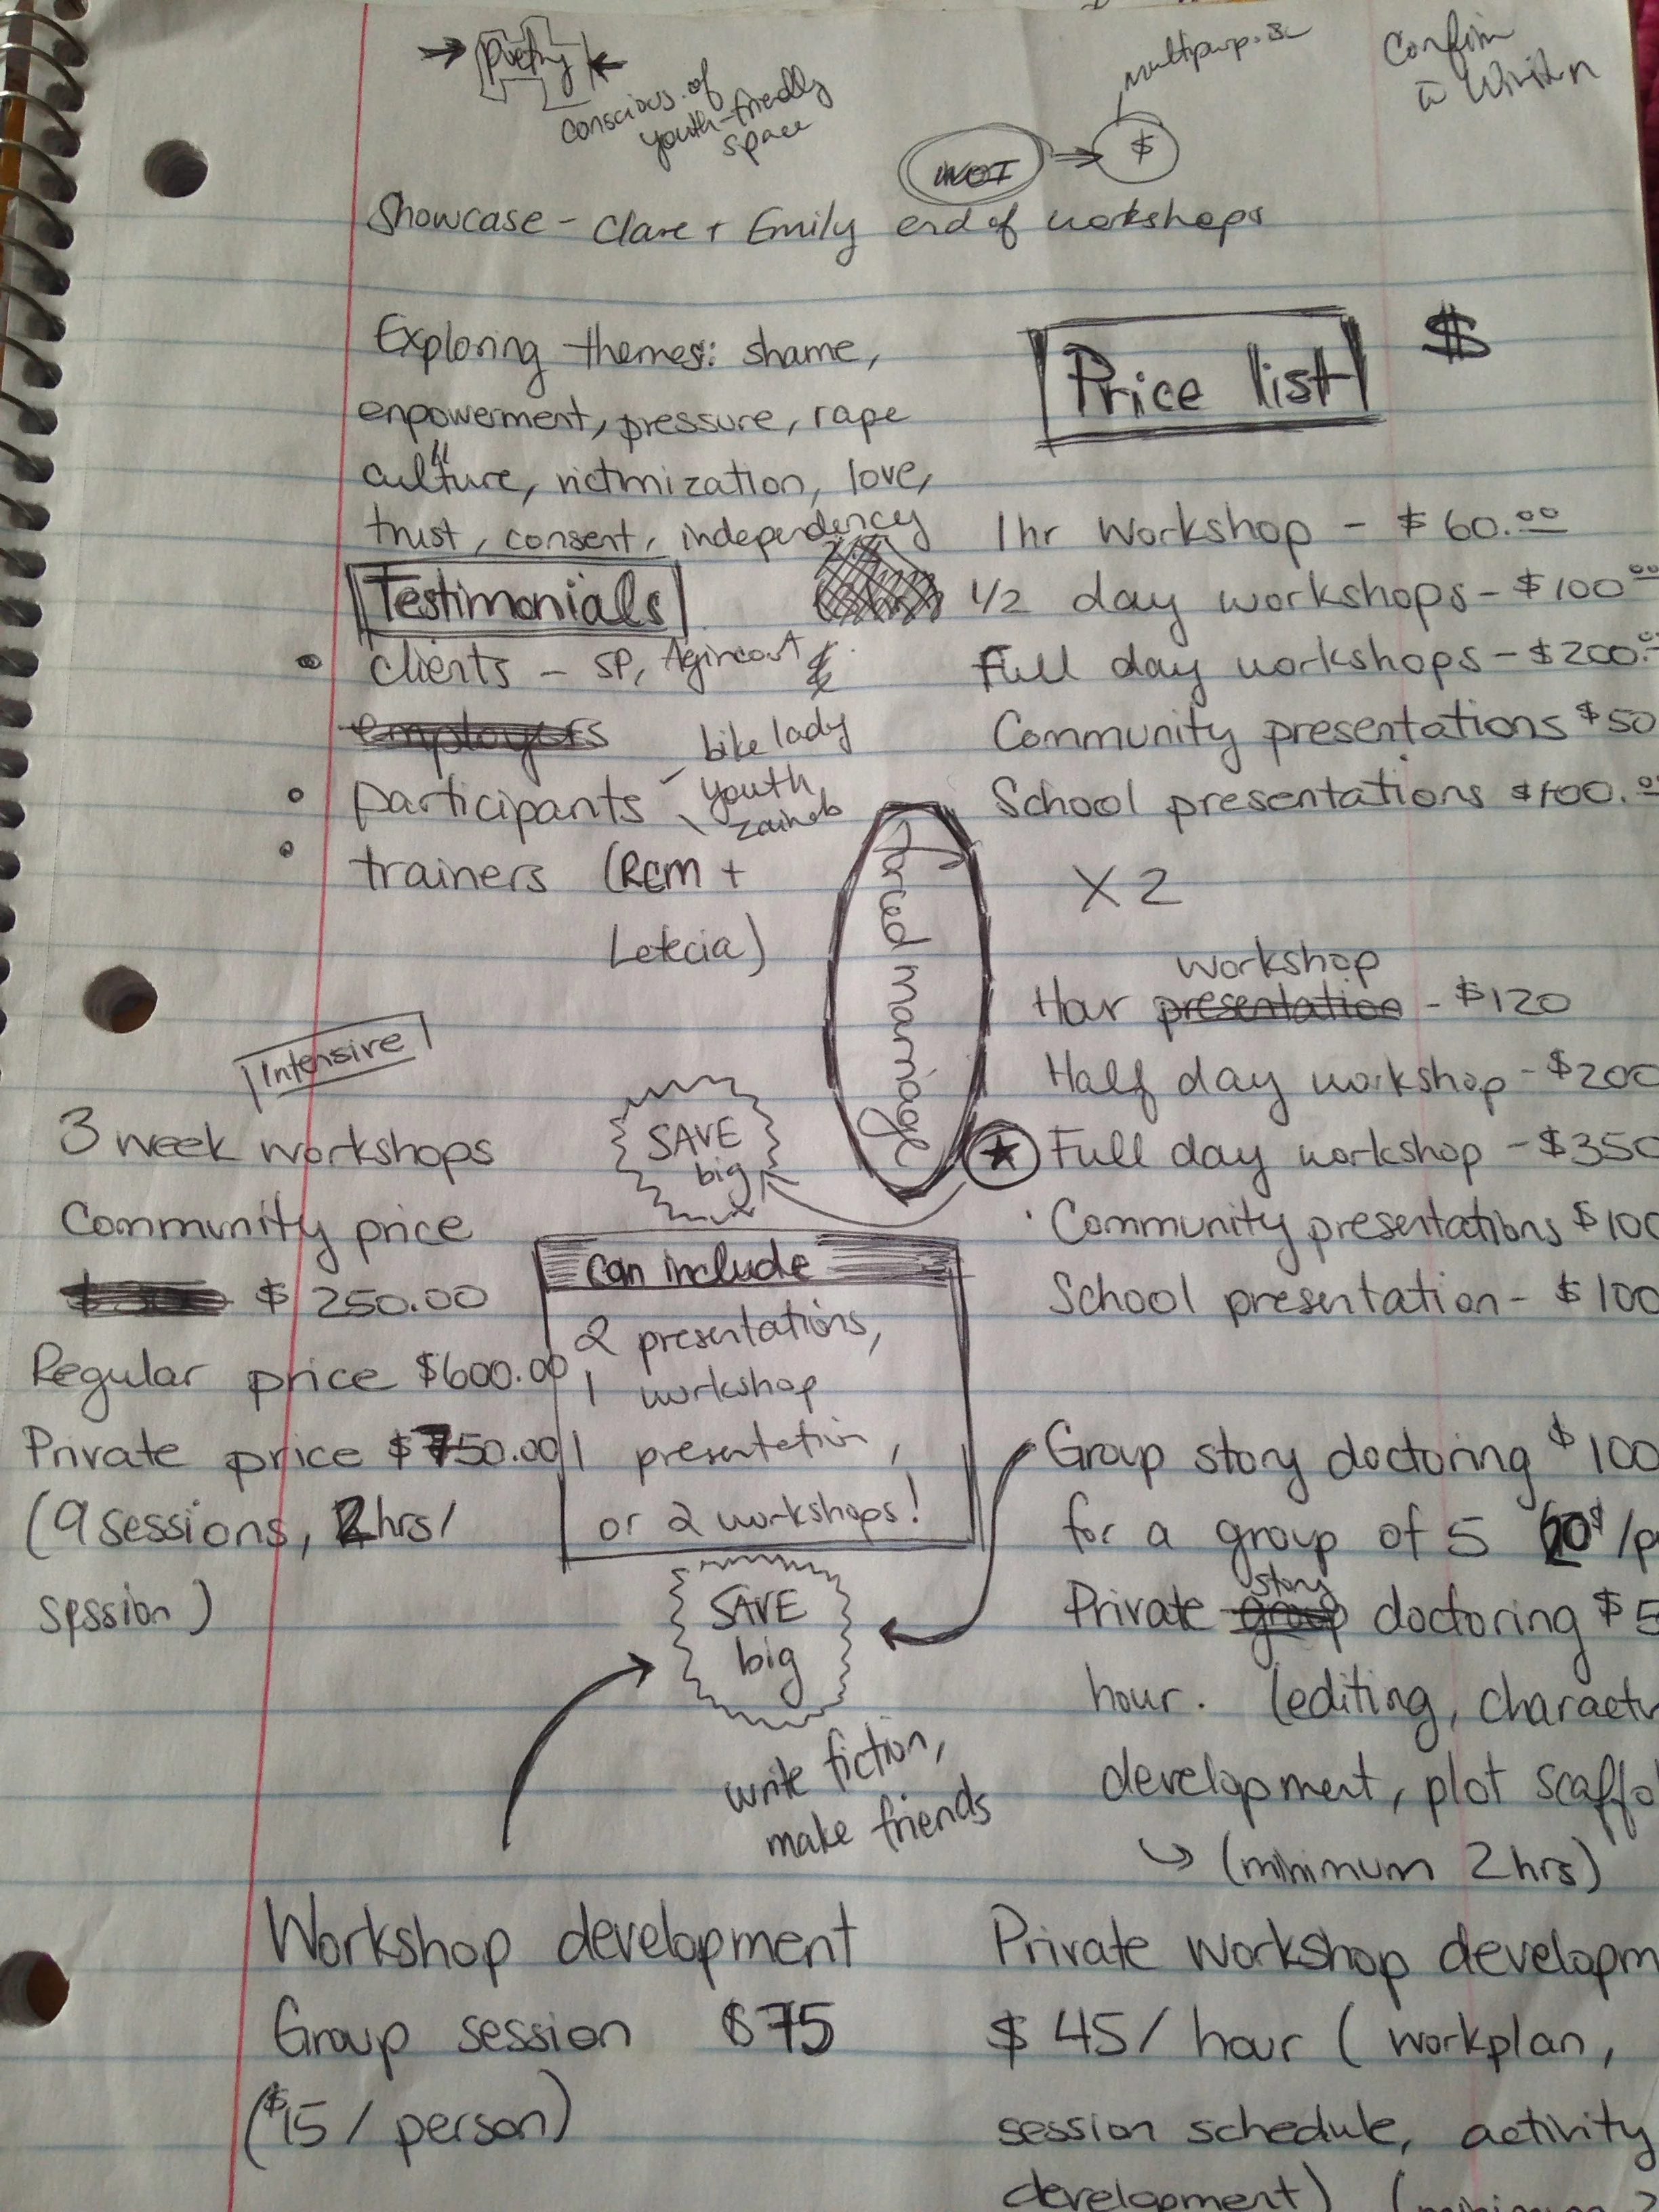 poetry
conscious of
youth-friendly
space
$
Confirm
Showcase - Clare + Emily end of workshops
Exploring themes: shame,
enpowerment, pressure, rape
culture, victimization, love,
trust, consent, independency
Testimonials
clients - SP, Agincourt
employers
bike lady
participants - youth
zainab
trainers (Rcm +
Letecia)
Price list $
1hr Workshop - $60.00
1/2 day workshops - $100.00
Full day workshops - $200.
Community presentations $50
School presentations $100.
X2
forced marriage
workshop
Hour presentation - $120
Half day workshop - $200
Full day workshop - $350
Community presentations $100
School presentation - $100
Intensive
3 week workshops
Community price
$250.00
Regular price $600.00
Private price $750.00
(9 sessions, 2hrs/
session)
SAVE
big
can include
2 presentations,
1 workshop
1 presentation,
or 2 workshops!
SAVE
big
write fiction,
make friends
Group story doctoring $100
for a group of 5 /p
story
Private group doctoring $5
hour. (editing, charact
development, plot scaffo
(minimum 2hrs)
Workshop development
Group session $75
($15/person)
Private workshop developm
$45/hour (workplan,
session schedule, activity
development)